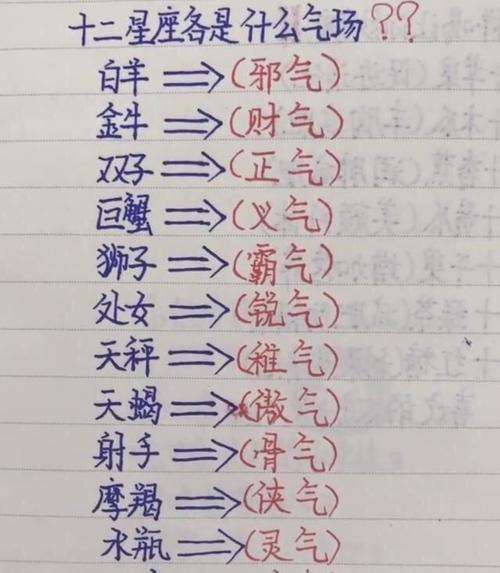 十二星座各是什么气场??
白羊⇒(邪气)
金牛⇒(财气)
双子⇒(正气)
巨蟹⇒(义气)
狮子⇒(霸气)
处女⇒(锐气)
天秤⇒(稚气)
天蝎⇒(傲气)
射手⇒(骨气)
摩羯⇒(侠气)
水瓶⇒(灵气)